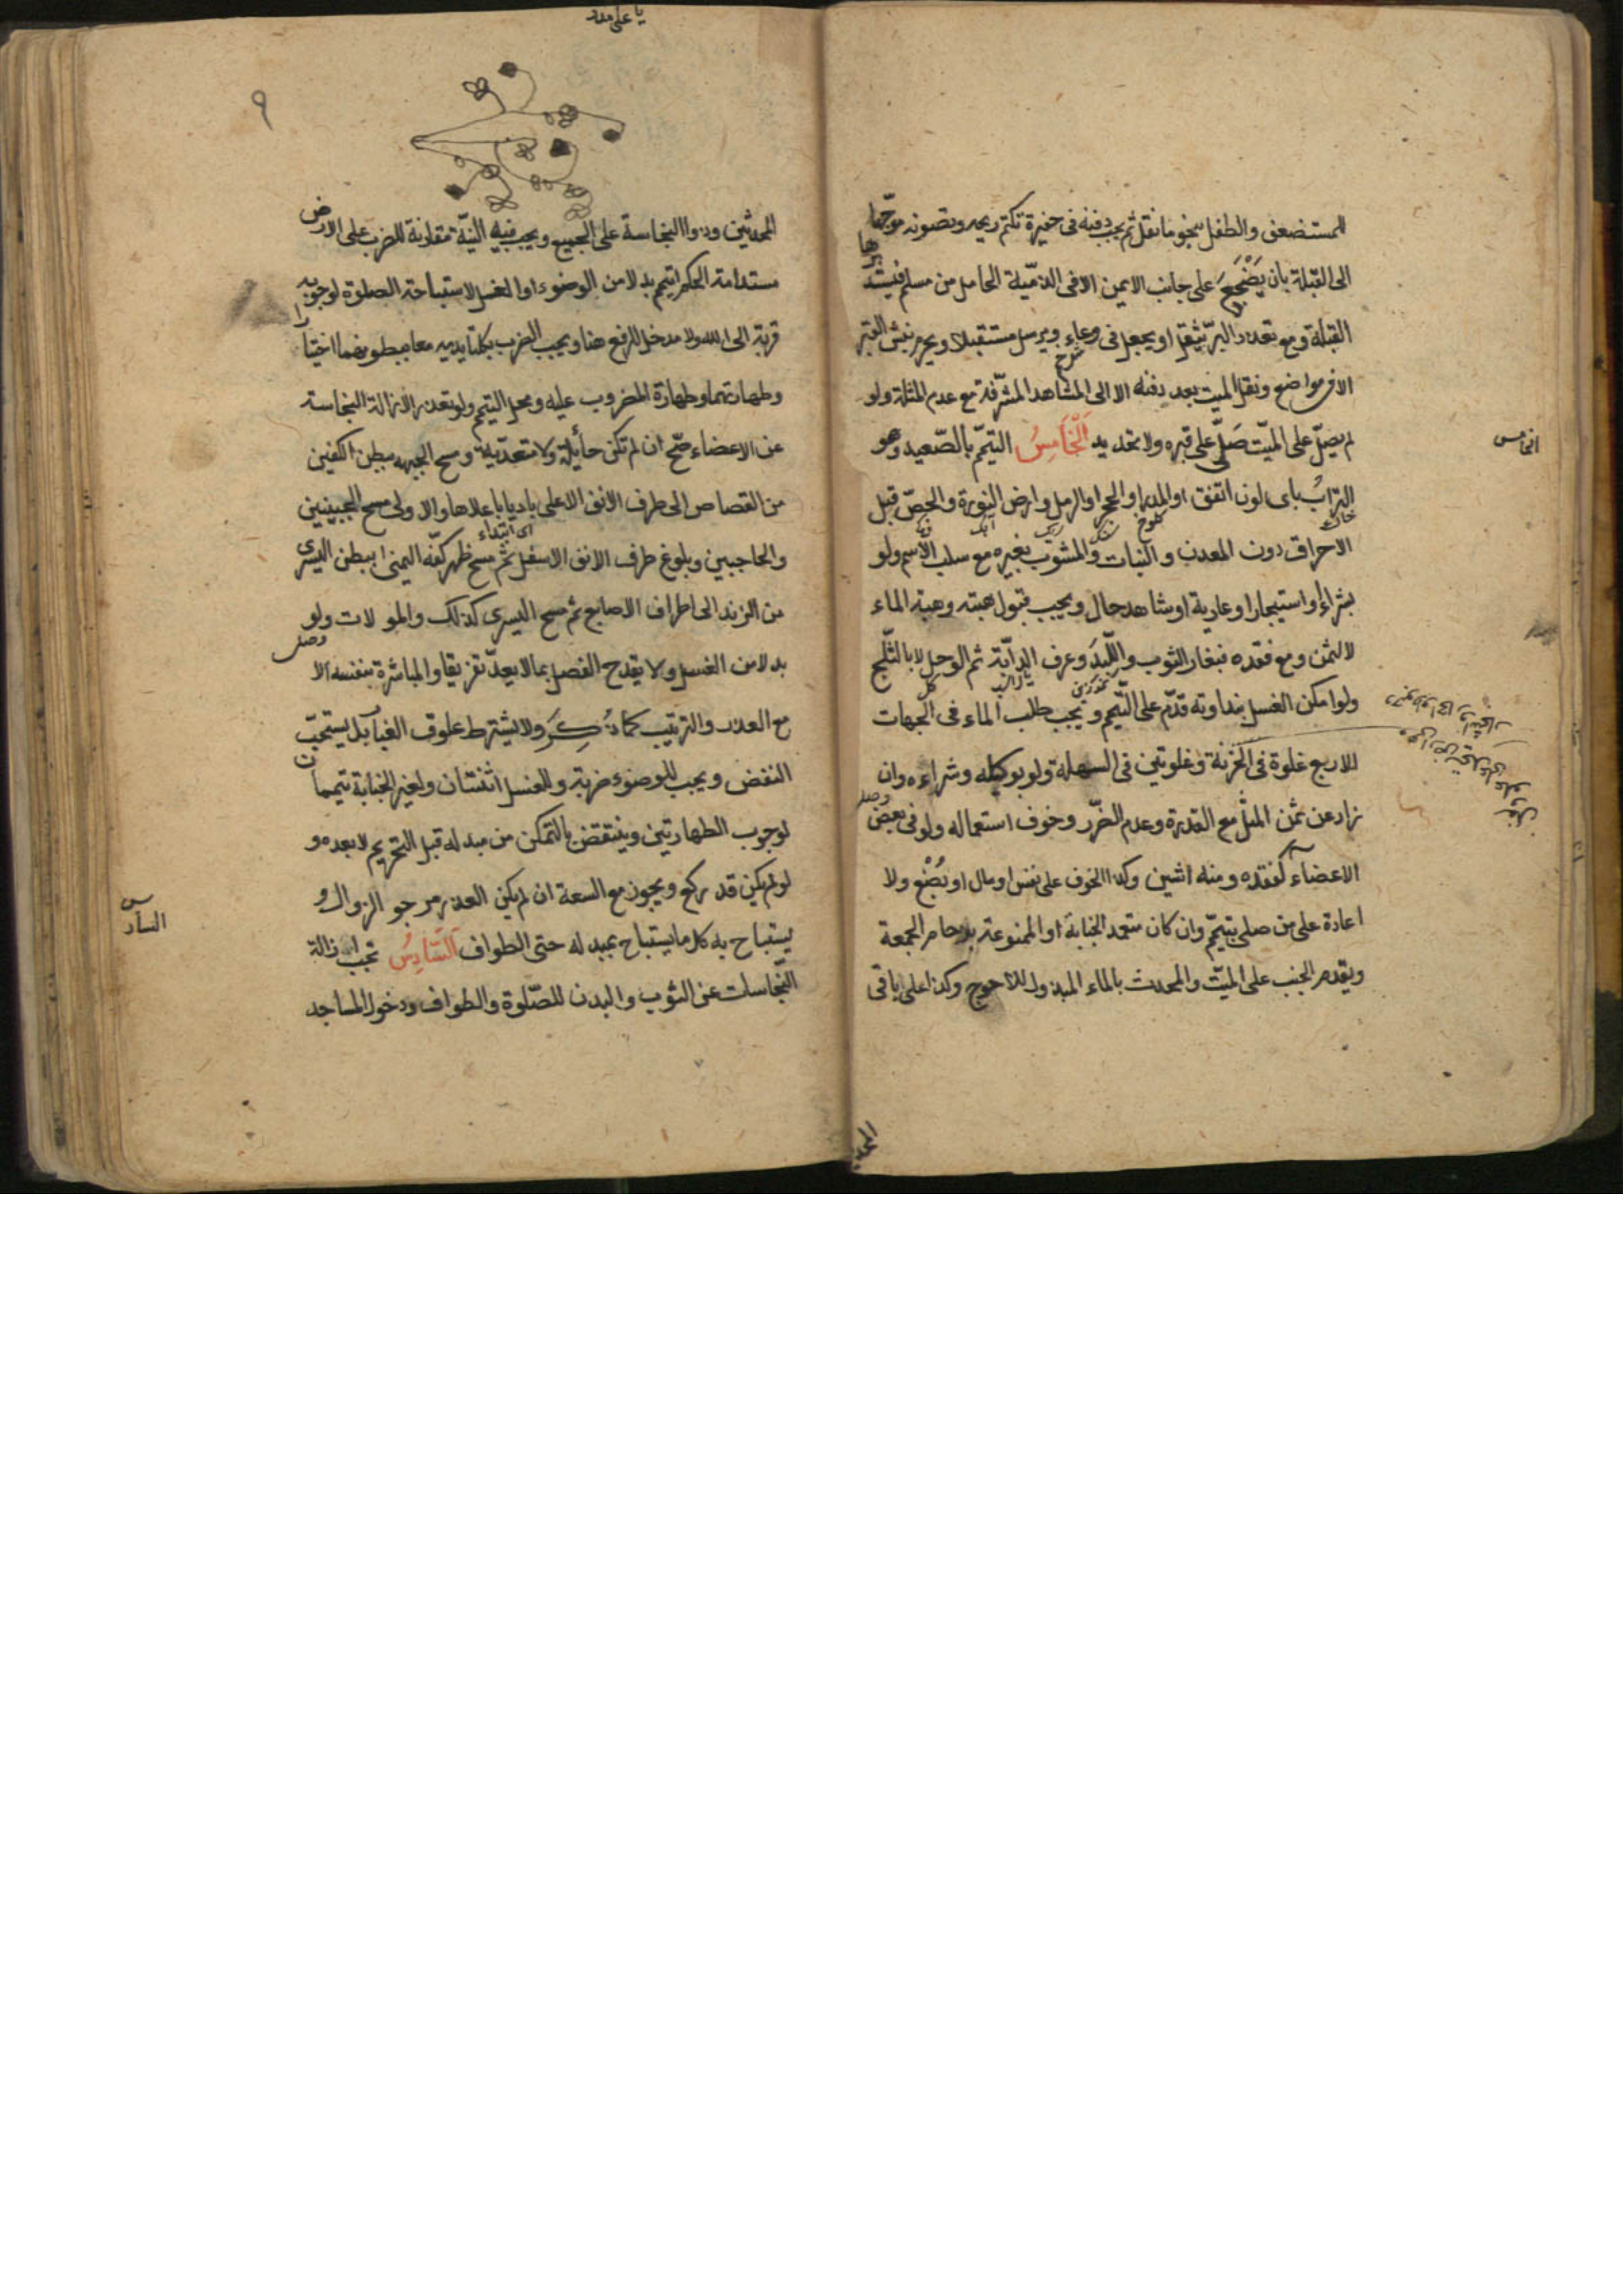 المستضعف والطفل بنحو ما نقل ثم يجب دفنه في حفيرة تكتم ريحه وتصونه موجّها
الى القبلة بان يَضْجَعَ على جانب الايمن الا في الذمّيّة الحامل من مسلم فيستد
برها
القبلة ومع تعذر البرّ يثقل او يجعل في وعاء ويرسل مستقبلا ويحرم نبش القبر
الا في مواضع ونقل الميت بعد دفنه الا الى المشاهد المشرّفة مع عدم المثلة ولو
لم يصلّ على الميّت صَلّى على قبره ولا تحديد اَلْخَامِسُ التيمّم بالصّعيد وهو
الخامس
الترابُ باى لون اتفق او المدر او الحجر او الرمل وارض النورة والجصّ قبل
الاحراق دون المعدن والنبات والمشوب بغيره مع سلب الاسم ولو
بشراء او استيجار او عارية او شاهد حال ويجب قبول هبته وهبة الماء
لا الثمن ومع فقده فبغبار الثوب واللّبد وعرف الدابّة ثم الوحل لا بالثّلج
ولو امكن الغسل بنداوته قدّم على التيمم ويجب طلب الماء في الجهات
الاربع غلوة في الحزنة وغلوتين في السهلة ولو بوكيله وشراءه وان
زاد عن ثمن المثل مع القدرة وعدم الضّرر وخوف استعماله ولو في بعض
الاعضاء كفقده ومنه الشين وكذا الخوف على نفس او مال او بُضْع ولا
اعادة على من صلى بتيمّم وان كان متعمد الجنابة او الممنوعة بزحام الجمعة
ويقدم الجنب على الميّت والمحدث بالماء المبذول للاحوج وكذا على باقي
المحد
يا على مدد
٩
المحدثين وذوا النجاسة على الجميع ويجب فيه النيّة مقارنة للضرب على الارض
مستدامة الحكم اتيمم بدلا من الوضوء او الغسل لاستباحة الصلوة لوجوبه
قربة الى الله ولا مدخل للرفع هنا ويجب الضرب بكلتا يديه معا ببطونهما اختيا
را
وطهارتهما وطهارة المضروب عليه ومحل التيمم ولو تعذر الازالة النجاسة
عن الاعضاء صّح ان لم تكن حائلة ولا متعدّية ومسح الجبهة ببطن الكفين
من القصاص الى طرف الانف الاعلى باديا باعلاها والاولى مسح الجبينين
اى ابتداء
والحاجبين وبلوغ طرف الانف الاسفل ثم مسح ظهر كفّه اليمنى ببطن اليسرى
من الزند الى اطراف الاصابع ثم مسح اليسرى كذلك والموالات ولو
بدلا من الغسل ولا يقدح الفصل بما لا يعدّ تفريقا والمباشرة بنفسه الا
مع العذر والترتيب كما ذُكِرَ ولا يشترط علوق الغبار بل يستحبّ
النفض ويجب للوضوء ضربة وللغسل اثنتان ولغير الجنابة تيمما
ن
لوجوب الطهارتين وينتقض بالتمكن من مبدله قبل التحريم لا بعده و
لو لم يكن قد ركع ويجوز مع السعة ان لم يكن العذر مرجو الزوال و
يستباح به كل ما يستباح بمبدله حتى الطواف اَلسَّادِسُ تجب ازالة
السادس
النّجاسات عن الثوب والبدن للصّلوة والطواف ودخول المساجد